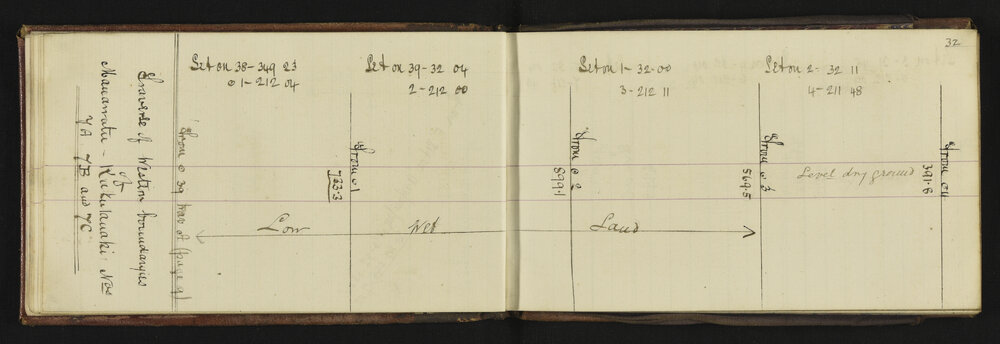 32
Traverse of Western boundaries
of
Manawatu - Kukutauaki Nos
7A 7B and 7C
From o 39 trav of (page 9)
Set on 38 - 349 23
o 1 - 212 04
Set on 39 - 32 04
2 - 212 00
Set on 1 - 32 - 00
3 - 212 11
Set on 2 - 32 11
4 - 211 48
From o 1
733.3
From o 2
899.1
From o 3
569.5
From o 4
391.8
Level dry ground
Low Wet Land